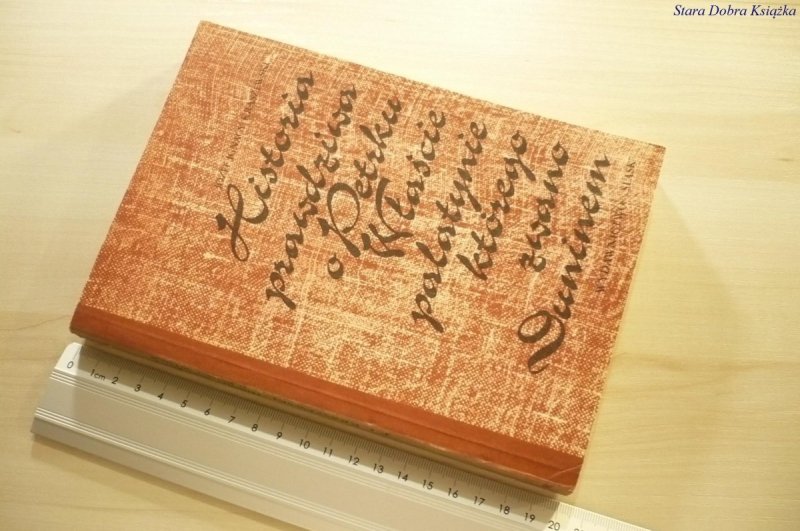 Stara Dobra Książka
Historia
prawdziwa
o Petrku
Właście
palatynie
którego
zwano
Duninem
WYDAWNICTWO ŚLĄSK
0 1cm 2 3 4 5 6 7 8 9 10 11 12 13 14 15 16 17 18 19 20